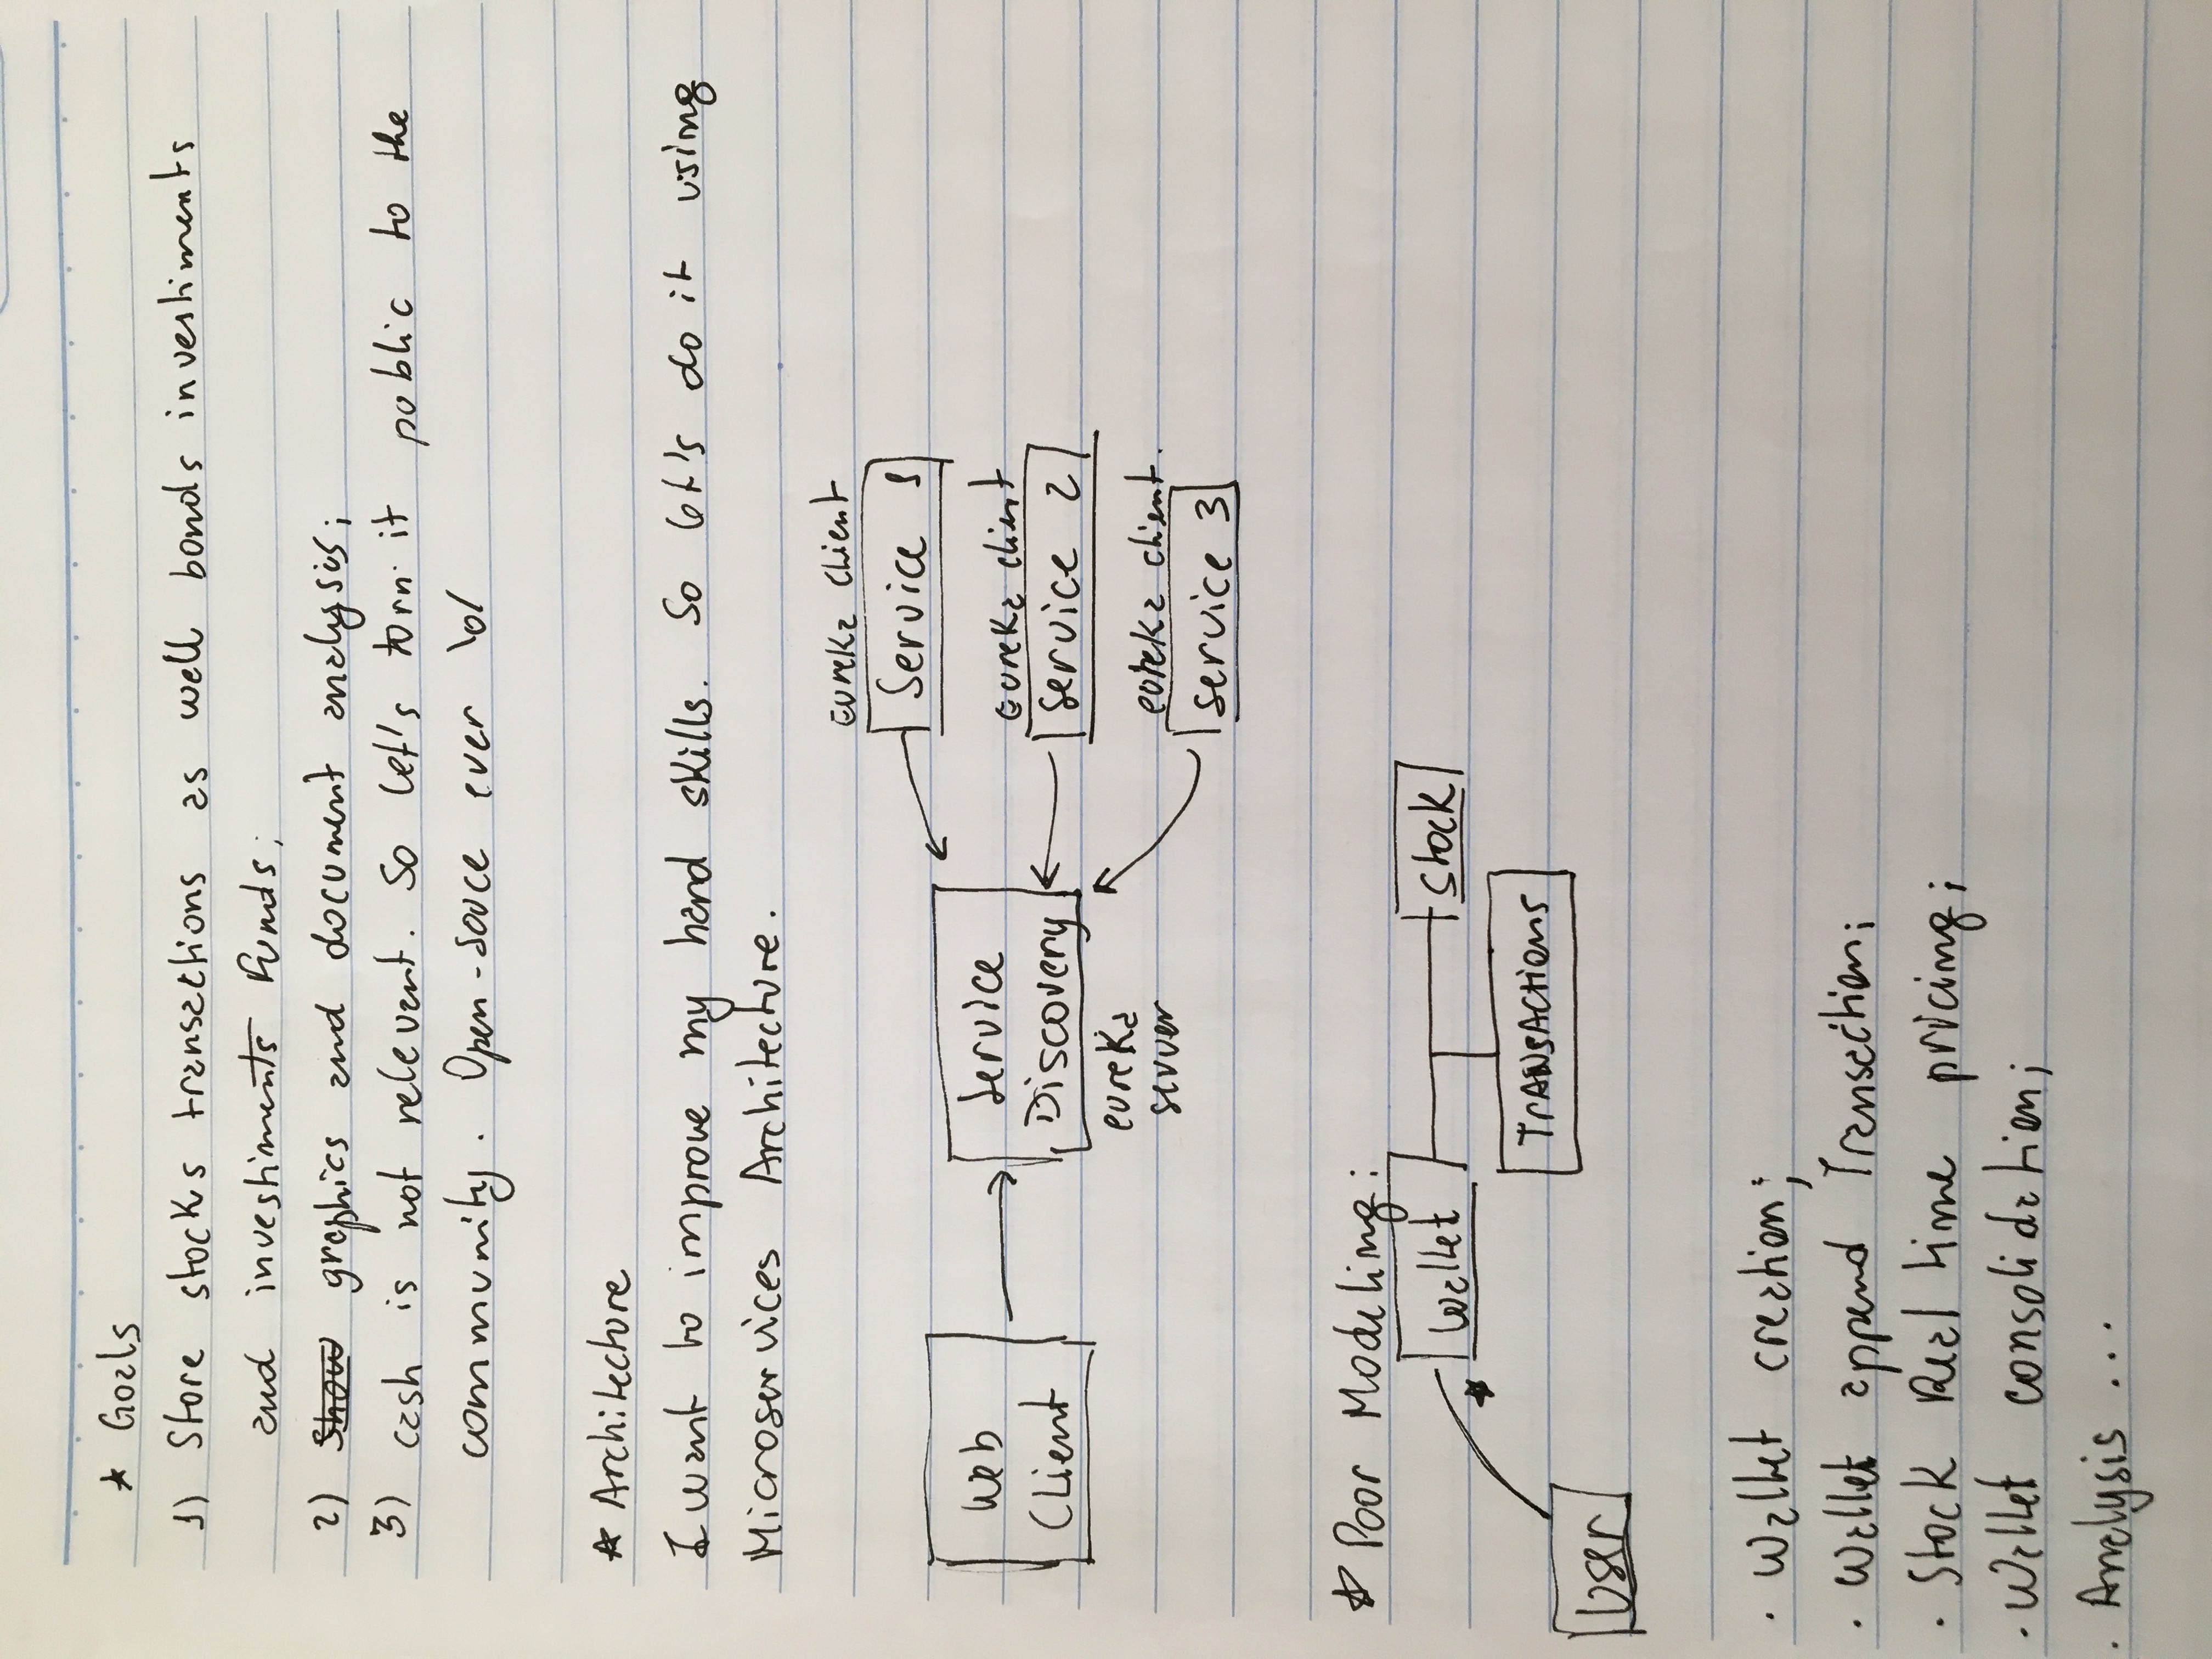 ★ Goals
1) Store stocks transactions as well bonds investiments
and investiments funds;
2) Show graphics and document analysis;
3) cash is not relevant. So let's torn it public to the
community. Open-souce ever \o/
★ Architecture
I want to improve my hard skills. So let's do it using
Microservices Architecture.
eureka client
Service 1
Web
Client
Service
Discovery
eureka
server
Eureka client
Service 2
eureka client.
Service 3
★ Poor Modeling:
Wallet
Stock
★
TrANSActions
User
· Wallet creation;
· Wallet append Transaction;
· Stock Real time pricing;
· Wallet consolidation;
· Analysis ...